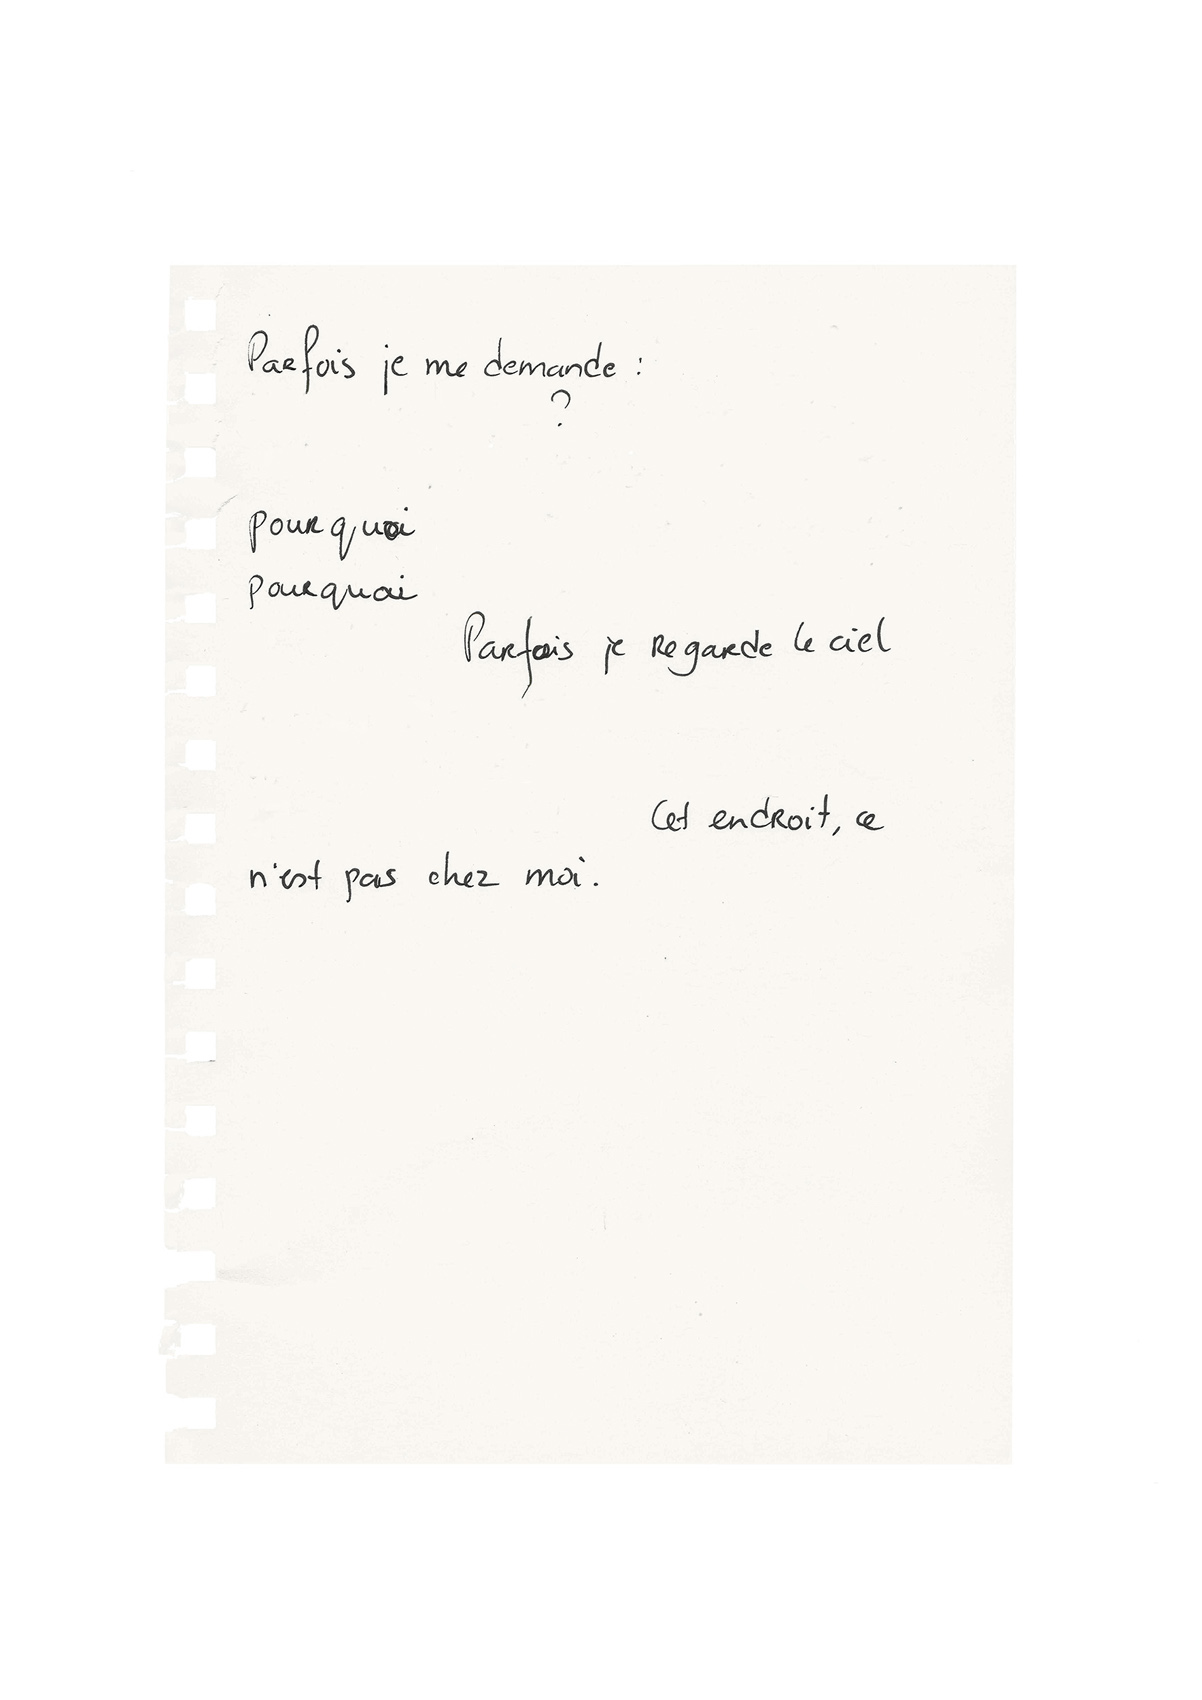 Parfois je me demande :
?
pourquoi
pourquoi
Parfois je regarde le ciel
Cet endroit, ce
n'est pas chez moi.